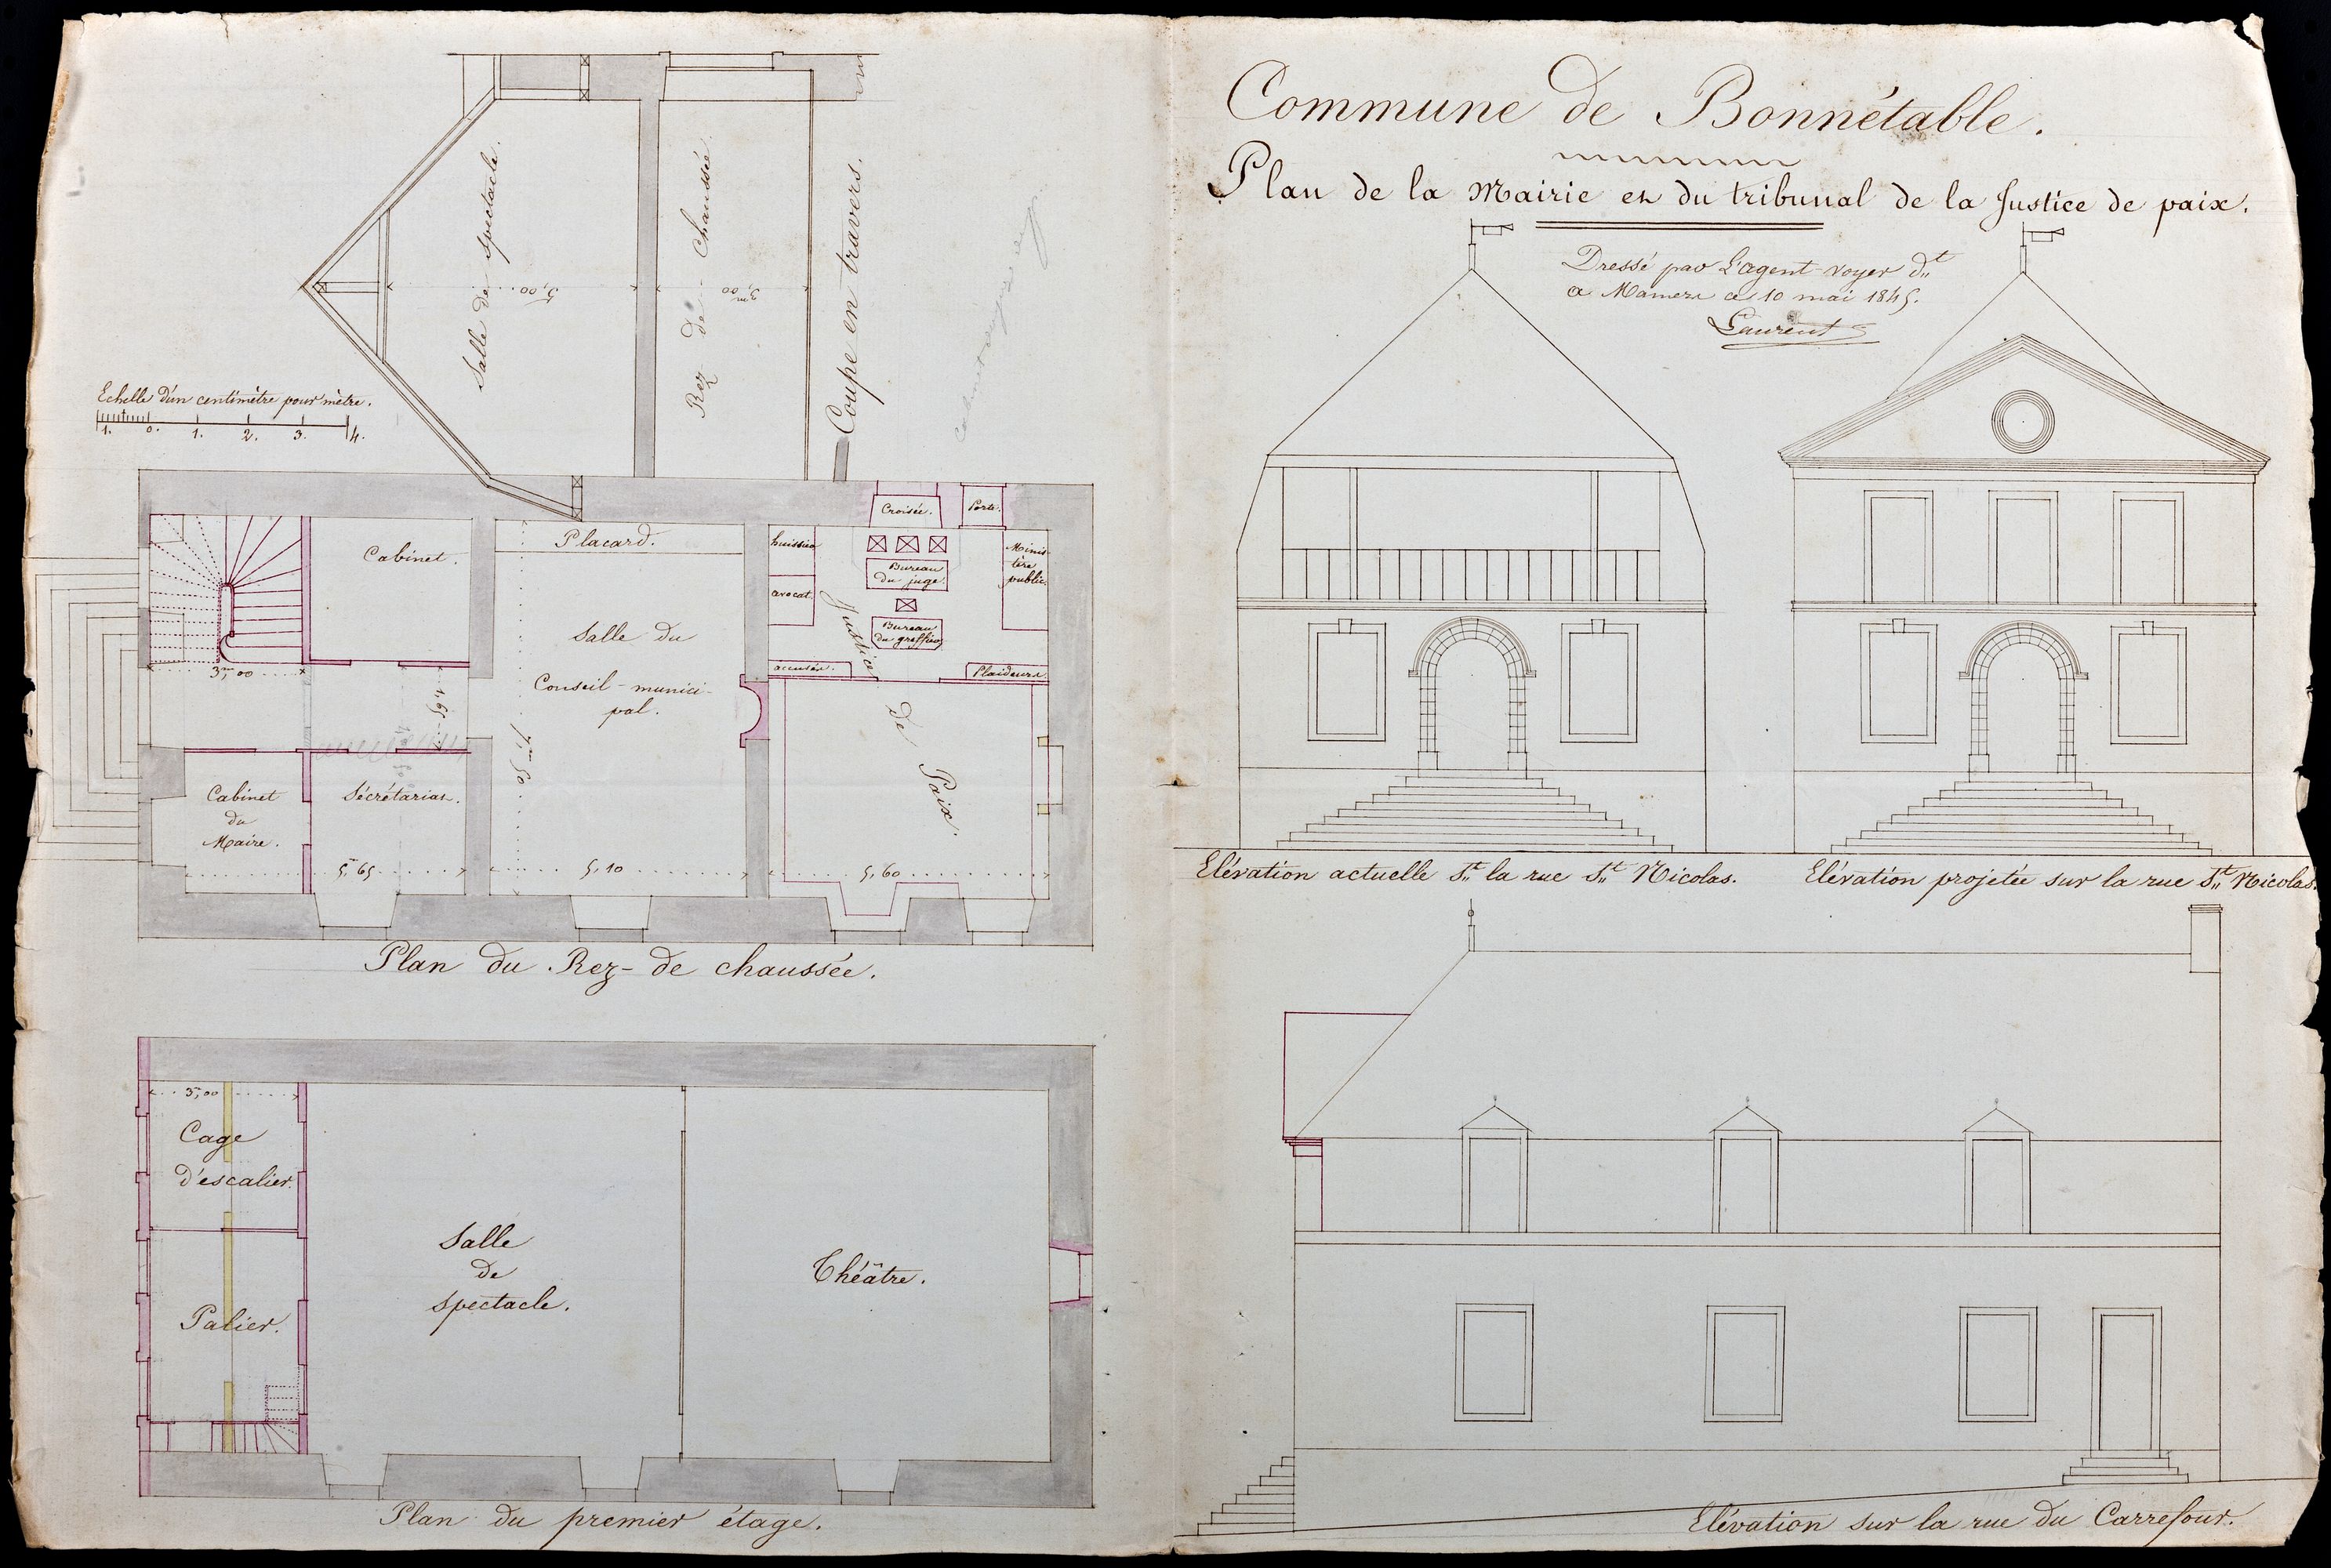 Commune de Bonnétable.
Plan de la Mairie et du tribunal de la Justice de paix.
Dressé par L'agent-voyer Sst
a Mamers ce 10 mai 1845.
Laurent
Salle de spectacle.
5,00
Rez de Chaussée.
3m,00
Coupe en travers.
Echelle d'un centimètre pour mètre.
1. 0. 1. 2. 3. 4.
Cabinet.
Placard.
huissier
avocat.
Croisée.
Porte.
Bureau
du juge.
Minis-
tère
public.
Bureau
du greffier
accusés.
Plaideurs.
Justice
De
Paix.
Salle du
Conseil-munici-
pal.
3m,00
1,65
7m,50
Cabinet
du
Maire.
Sécrétariat.
5m,65
5,10
5,60
Plan du Rez-de chaussée.
3m,00
Cage
d'escalier.
Palier.
Salle
de
spectacle.
Théâtre.
Plan du premier étage.
Elévation actuelle St la rue St Nicolas.
Elévation projetée sur la rue St Nicolas.
Elévation sur la rue du Carrefour.